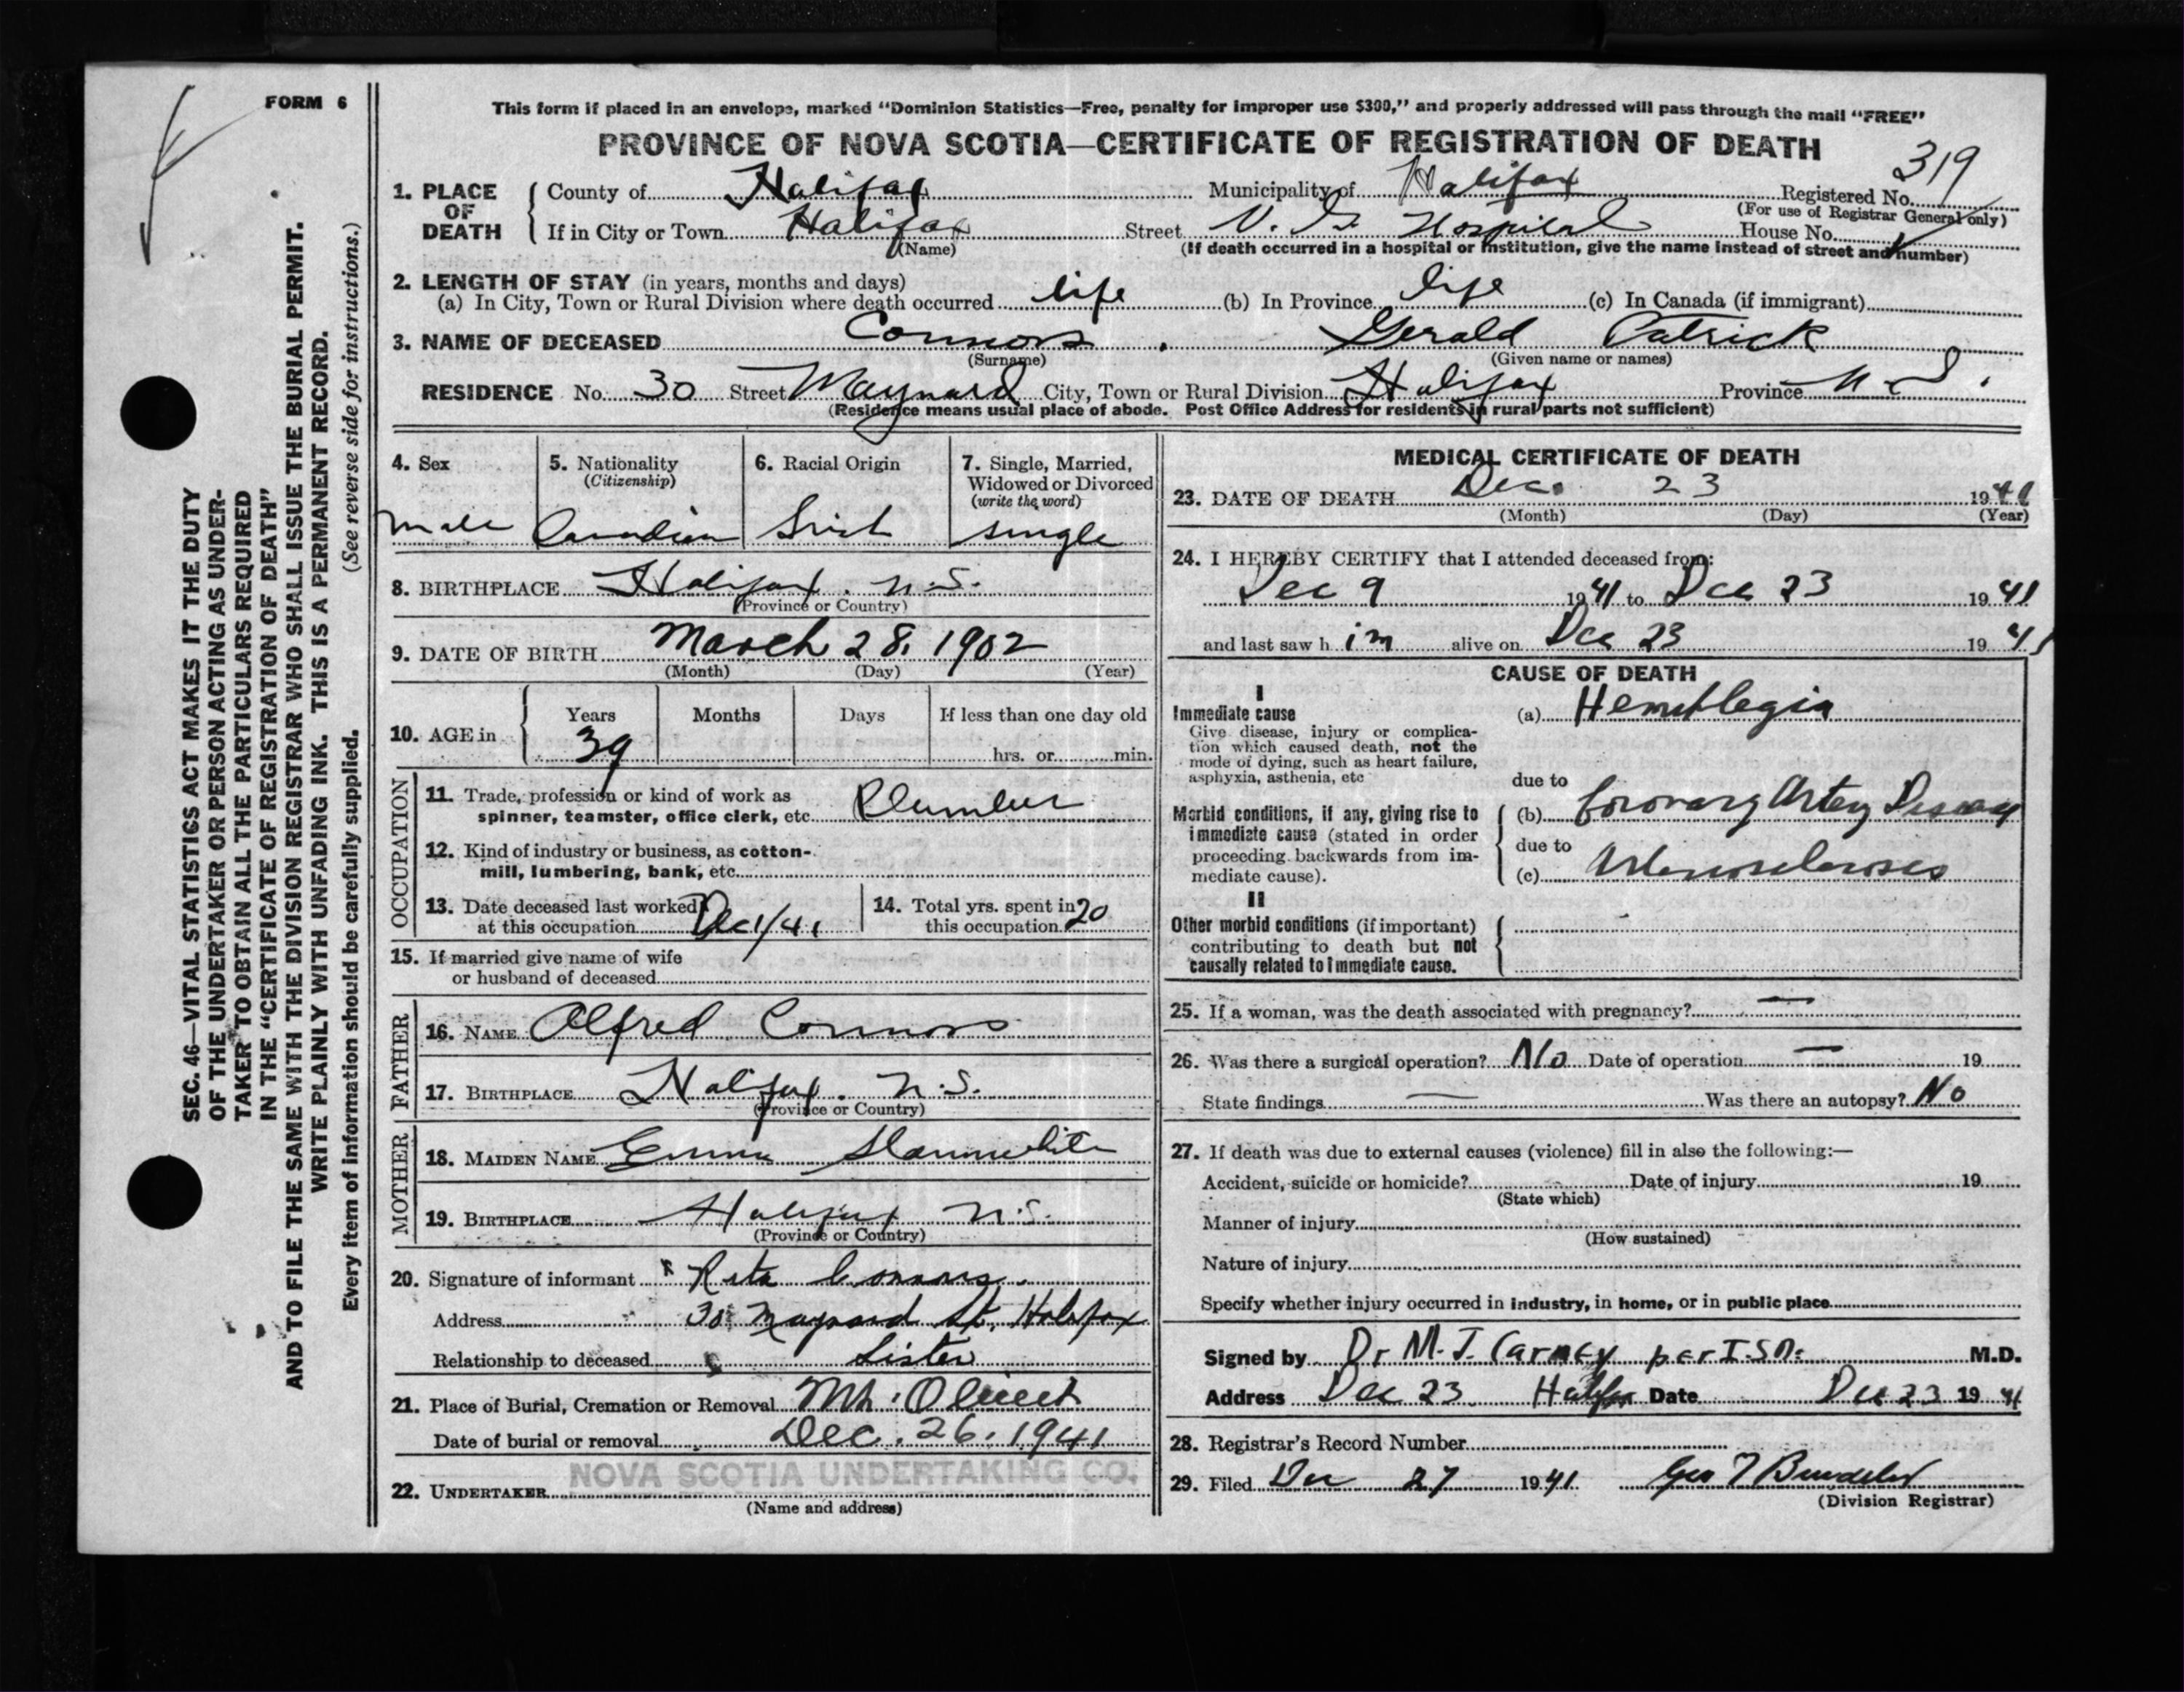 FORM 6
This form if placed in an envelope, marked "Dominion Statistics—Free, penalty for improper use $300," and properly addressed will pass through the mail "FREE"
PROVINCE OF NOVA SCOTIA—CERTIFICATE OF REGISTRATION OF DEATH
319
1. PLACE OF DEATH County of Halifax Municipality of Halifax Registered No.
(For use of Registrar General only)
If in City or Town Halifax Street V. G. Hospital House No.
(Name) (If death occurred in a hospital or institution, give the name instead of street and number)
2. LENGTH OF STAY (in years, months and days)
(a) In City, Town or Rural Division where death occurred life (b) In Province life (c) In Canada (if immigrant)
3. NAME OF DECEASED Connors . Gerald Patrick
(Surname) (Given name or names)
RESIDENCE No. 30 Street Maynard City, Town or Rural Division Halifax Province N.S.
(Residence means usual place of abode. Post Office Address for residents in rural parts not sufficient)
4. Sex 5. Nationality (Citizenship) 6. Racial Origin 7. Single, Married, Widowed or Divorced (write the word)
male Canadian Irish single
8. BIRTHPLACE Halifax. N.S.
(Province or Country)
9. DATE OF BIRTH March 28, 1902
(Month) (Day) (Year)
10. AGE in Years Months Days If less than one day old
39 hrs. or min.
OCCUPATION
11. Trade, profession or kind of work as
spinner, teamster, office clerk, etc. Plumber
12. Kind of industry or business, as cotton-
mill, lumbering, bank, etc.
13. Date deceased last worked
at this occupation Dec 1/41
14. Total yrs. spent in
this occupation 20
15. If married give name of wife
or husband of deceased
FATHER
16. NAME Alfred Connors
17. BIRTHPLACE Halifax. N.S.
(Province or Country)
MOTHER
18. MAIDEN NAME Emma Slaunwhite
19. BIRTHPLACE Halifax N.S.
(Province or Country)
20. Signature of informant x Rita Connors.
Address 30 Maynard St, Halifax
Relationship to deceased Sister
21. Place of Burial, Cremation or Removal Mt. Olivet
Date of burial or removal Dec. 26. 1941
NOVA SCOTIA UNDERTAKING CO.
22. UNDERTAKER
(Name and address)
MEDICAL CERTIFICATE OF DEATH
23. DATE OF DEATH Dec. 23 1941
(Month) (Day) (Year)
24. I HEREBY CERTIFY that I attended deceased from:
Dec 9 1941 to Dec 23 1941
and last saw h im alive on Dec 23 1941
CAUSE OF DEATH
I
Immediate cause (a) Hemiplegia
Give disease, injury or complica-
tion which caused death, not the
mode of dying, such as heart failure,
asphyxia, asthenia, etc
due to
Morbid conditions, if any, giving rise to
immediate cause (stated in order
proceeding backwards from im-
mediate cause).
(b) Coronary Artery Disease
due to
(c) Arteriosclerosis
II
Other morbid conditions (if important)
contributing to death but not
causally related to immediate cause.
25. If a woman, was the death associated with pregnancy? —
26. Was there a surgical operation? No Date of operation — 19
State findings — Was there an autopsy? No
27. If death was due to external causes (violence) fill in also the following:—
Accident, suicide or homicide? Date of injury 19
(State which)
Manner of injury
(How sustained)
Nature of injury
Specify whether injury occurred in industry, in home, or in public place
Signed by Dr M. J. Carney per I.S.M. M.D.
Address Dec 23 Halifax Date Dec 23 1941
28. Registrar's Record Number
29. Filed Dec 27 1941 Geo
(Division Registrar)
SEC. 46—VITAL STATISTICS ACT MAKES IT THE DUTY
OF THE UNDERTAKER OR PERSON ACTING AS UNDER-
TAKER TO OBTAIN ALL THE PARTICULARS REQUIRED
IN THE "CERTIFICATE OF REGISTRATION OF DEATH"
AND TO FILE THE SAME WITH THE DIVISION REGISTRAR WHO SHALL ISSUE THE BURIAL PERMIT.
WRITE PLAINLY WITH UNFADING INK. THIS IS A PERMANENT RECORD.
Every item of information should be carefully supplied. (See reverse side for instructions.)